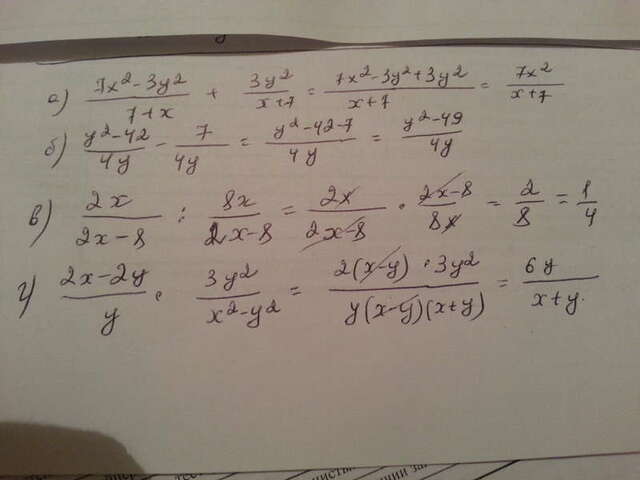 а) (7x²-3y²)/(7+x) + 3y²/(x+7) = (7x²-3y²+3y²)/(x+7) = 7x²/(x+7)
б) (y²-42)/4y - 7/4y = (y²-42-7)/4y = (y²-49)/4y
в) 2x/(2x-8) : 8x/(2x-8) = 2x/(2x-8) · (2x-8)/8x = 2/8 = 1/4
г) (2x-2y)/y · 3y²/(x²-y²) = (2(x-y)·3y²)/(y(x-y)(x+y)) = 6y/(x+y)